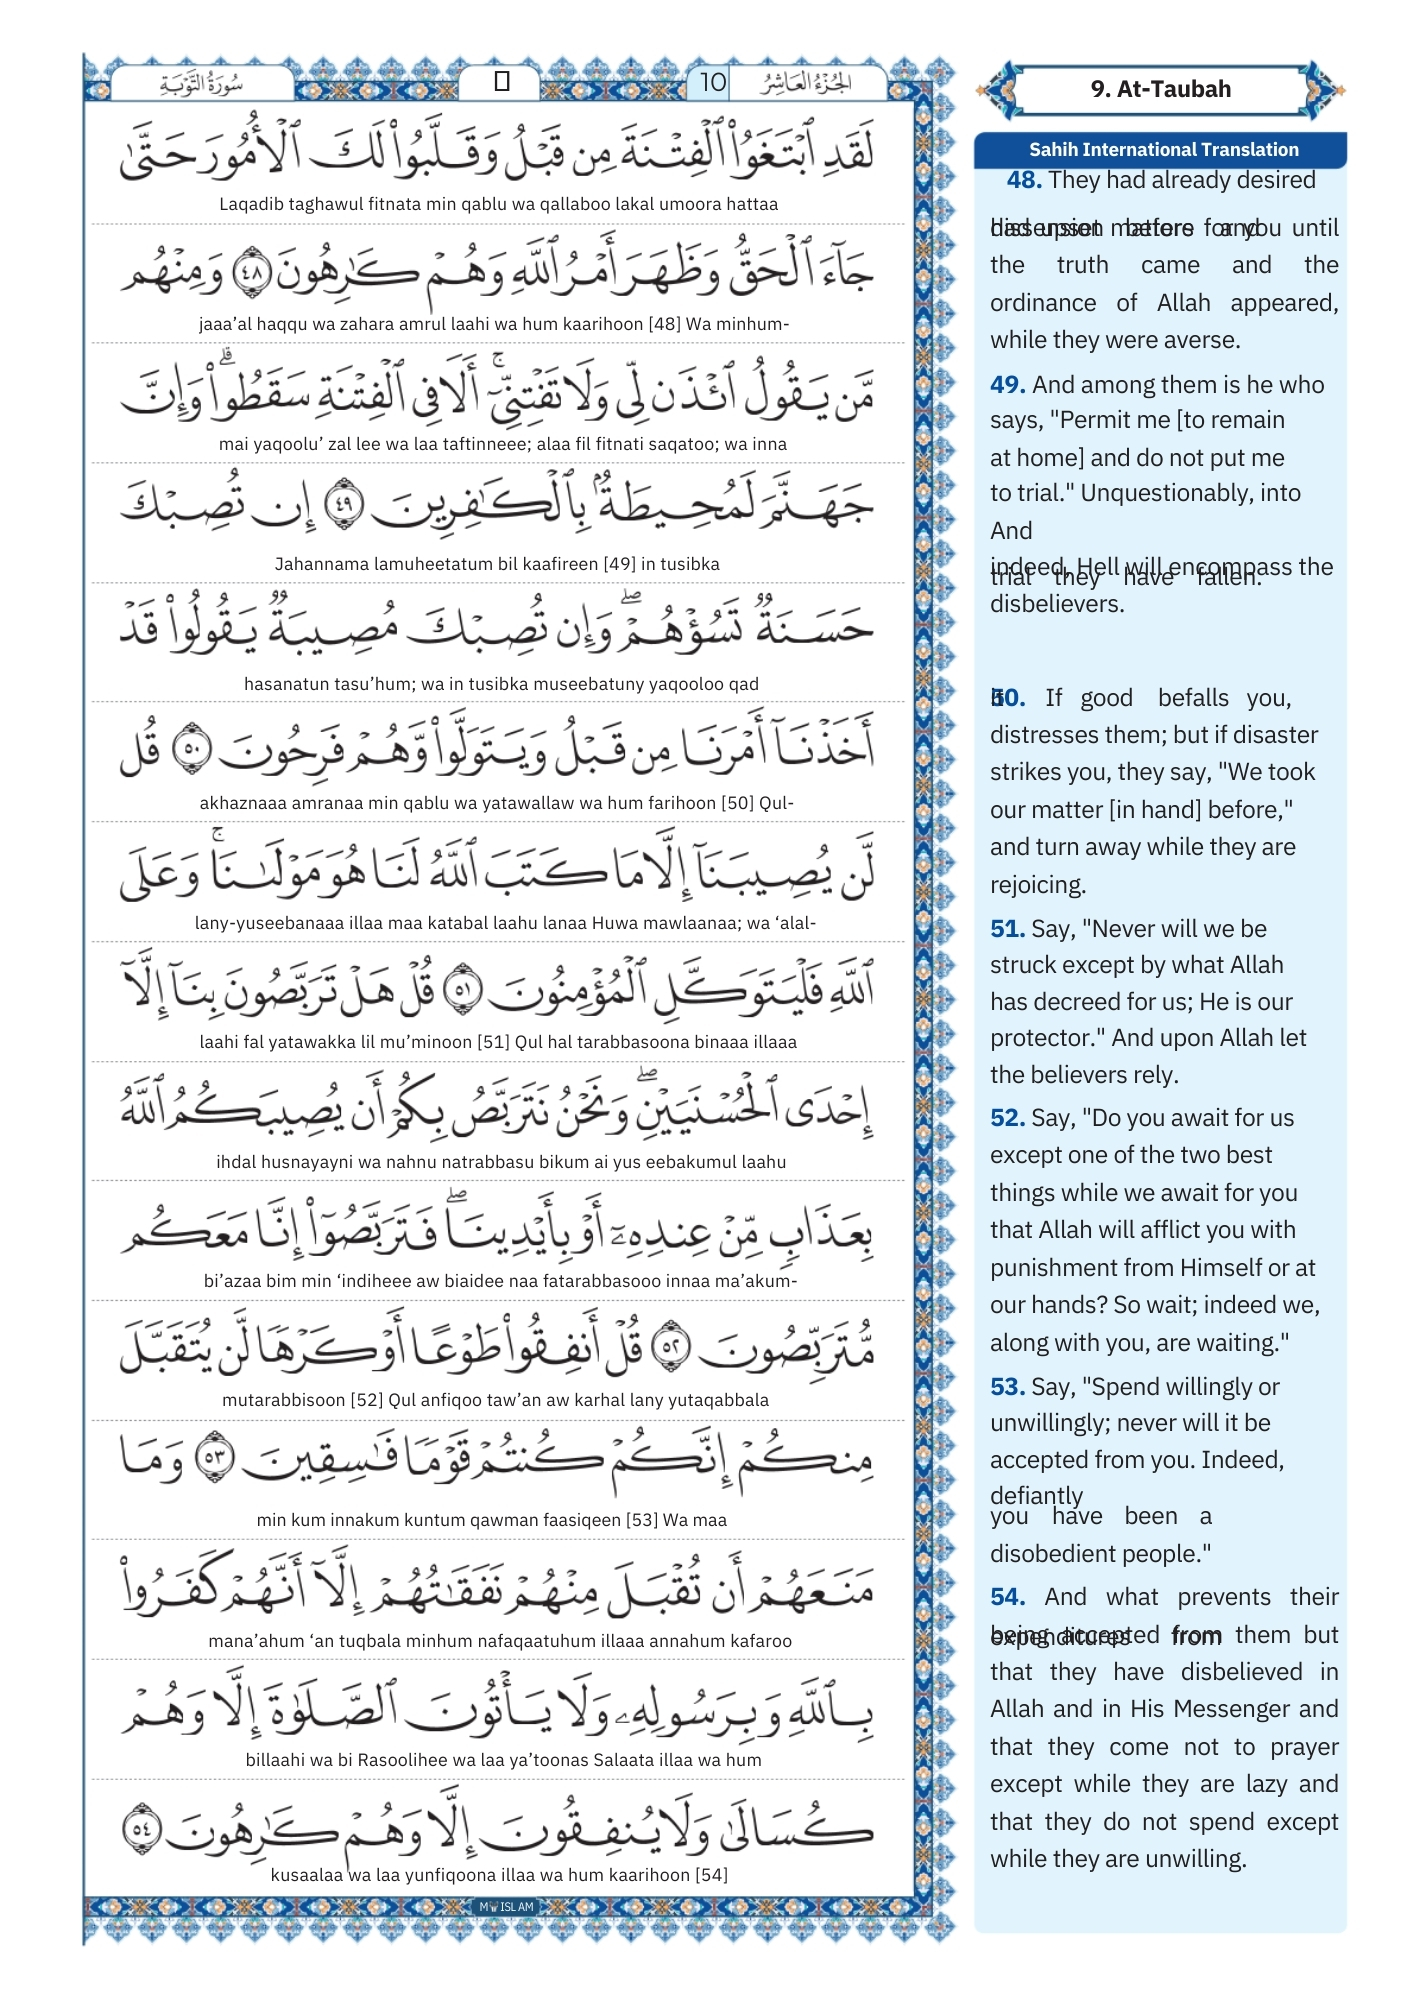 سُورَةُ التَّوْبَةِ
10 الجُزْءُ العَاشِرُ
لَقَدِ ٱبْتَغَوُا۟ ٱلْفِتْنَةَ مِن قَبْلُ وَقَلَّبُوا۟ لَكَ ٱلْأُمُورَ حَتَّىٰ
Laqadib taghawul fitnata min qablu wa qallaboo lakal umoora hattaa
جَآءَ ٱلْحَقُّ وَظَهَرَ أَمْرُ ٱللَّهِ وَهُمْ كَـٰرِهُونَ ٤٨ وَمِنْهُم
jaaa’al haqqu wa zahara amrul laahi wa hum kaarihoon [48] Wa minhum-
مَّن يَقُولُ ٱئْذَن لِّى وَلَا تَفْتِنِّىٓ ۚ أَلَا فِى ٱلْفِتْنَةِ سَقَطُوا۟ ۗ وَإِنَّ
mai yaqoolu’ zal lee wa laa taftinneee; alaa fil fitnati saqatoo; wa inna
جَهَنَّمَ لَمُحِيطَةٌۢ بِٱلْكَـٰفِرِينَ ٤٩ إِن تُصِبْكَ
Jahannama lamuheetatum bil kaafireen [49] in tusibka
حَسَنَةٌ تَسُؤْهُمْ ۖ وَإِن تُصِبْكَ مُصِيبَةٌ يَقُولُوا۟ قَدْ
hasanatun tasu’hum; wa in tusibka museebatuny yaqooloo qad
أَخَذْنَآ أَمْرَنَا مِن قَبْلُ وَيَتَوَلَّوا۟ وَّهُمْ فَرِحُونَ ٥٠ قُل
akhaznaaa amranaa min qablu wa yatawallaw wa hum farihoon [50] Qul-
لَّن يُصِيبَنَآ إِلَّا مَا كَتَبَ ٱللَّهُ لَنَا هُوَ مَوْلَىٰنَا ۚ وَعَلَى
lany-yuseebanaaa illaa maa katabal laahu lanaa Huwa mawlaanaa; wa ‘alal-
ٱللَّهِ فَلْيَتَوَكَّلِ ٱلْمُؤْمِنُونَ ٥١ قُلْ هَلْ تَرَبَّصُونَ بِنَآ إِلَّآ
laahi fal yatawakka lil mu’minoon [51] Qul hal tarabbasoona binaaa illaaa
إِحْدَى ٱلْحُسْنَيَيْنِ ۖ وَنَحْنُ نَتَرَبَّصُ بِكُمْ أَن يُصِيبَكُمُ ٱللَّهُ
ihdal husnayayni wa nahnu natrabbasu bikum ai yus eebakumul laahu
بِعَذَابٍ مِّنْ عِندِهِۦٓ أَوْ بِأَيْدِينَا ۖ فَتَرَبَّصُوٓا۟ إِنَّا مَعَكُم
bi’azaa bim min ‘indiheee aw biaidee naa fatarabbasooo innaa ma’akum-
مُّتَرَبِّصُونَ ٥٢ قُلْ أَنفِقُوا۟ طَوْعًا أَوْ كَرْهًا لَّن يُتَقَبَّلَ
mutarabbisoon [52] Qul anfiqoo taw’an aw karhal lany yutaqabbala
مِنكُمْ إِنَّكُمْ كُنتُمْ قَوْمًا فَـٰسِقِينَ ٥٣ وَمَا
min kum innakum kuntum qawman faasiqeen [53] Wa maa
مَنَعَهُمْ أَن تُقْبَلَ مِنْهُمْ نَفَقَـٰتُهُمْ إِلَّآ أَنَّهُمْ كَفَرُوا۟
mana’ahum ‘an tuqbala minhum nafaqaatuhum illaaa annahum kafaroo
بِٱللَّهِ وَبِرَسُولِهِۦ وَلَا يَأْتُونَ ٱلصَّلَوٰةَ إِلَّا وَهُمْ
billaahi wa bi Rasoolihee wa laa ya’toonas Salaata illaa wa hum
كُسَالَىٰ وَلَا يُنفِقُونَ إِلَّا وَهُمْ كَـٰرِهُونَ ٥٤
kusaalaa wa laa yunfiqoona illaa wa hum kaarihoon [54]
9. At-Taubah
Sahih International Translation
48. They had already desired
dissension before and
had upset matters for you until
the truth came and the
ordinance of Allah appeared,
while they were averse.
49. And among them is he who
says, "Permit me [to remain
at home] and do not put me
to trial." Unquestionably, into
And
indeed, Hell will encompass the
trial they have fallen.
disbelievers.
50. If good befalls you,
it
distresses them; but if disaster
strikes you, they say, "We took
our matter [in hand] before,"
and turn away while they are
rejoicing.
51. Say, "Never will we be
struck except by what Allah
has decreed for us; He is our
protector." And upon Allah let
the believers rely.
52. Say, "Do you await for us
except one of the two best
things while we await for you
that Allah will afflict you with
punishment from Himself or at
our hands? So wait; indeed we,
along with you, are waiting."
53. Say, "Spend willingly or
unwillingly; never will it be
accepted from you. Indeed,
defiantly
you have been a
disobedient people."
54. And what prevents their
expenditures from
being accepted from them but
that they have disbelieved in
Allah and in His Messenger and
that they come not to prayer
except while they are lazy and
that they do not spend except
while they are unwilling.